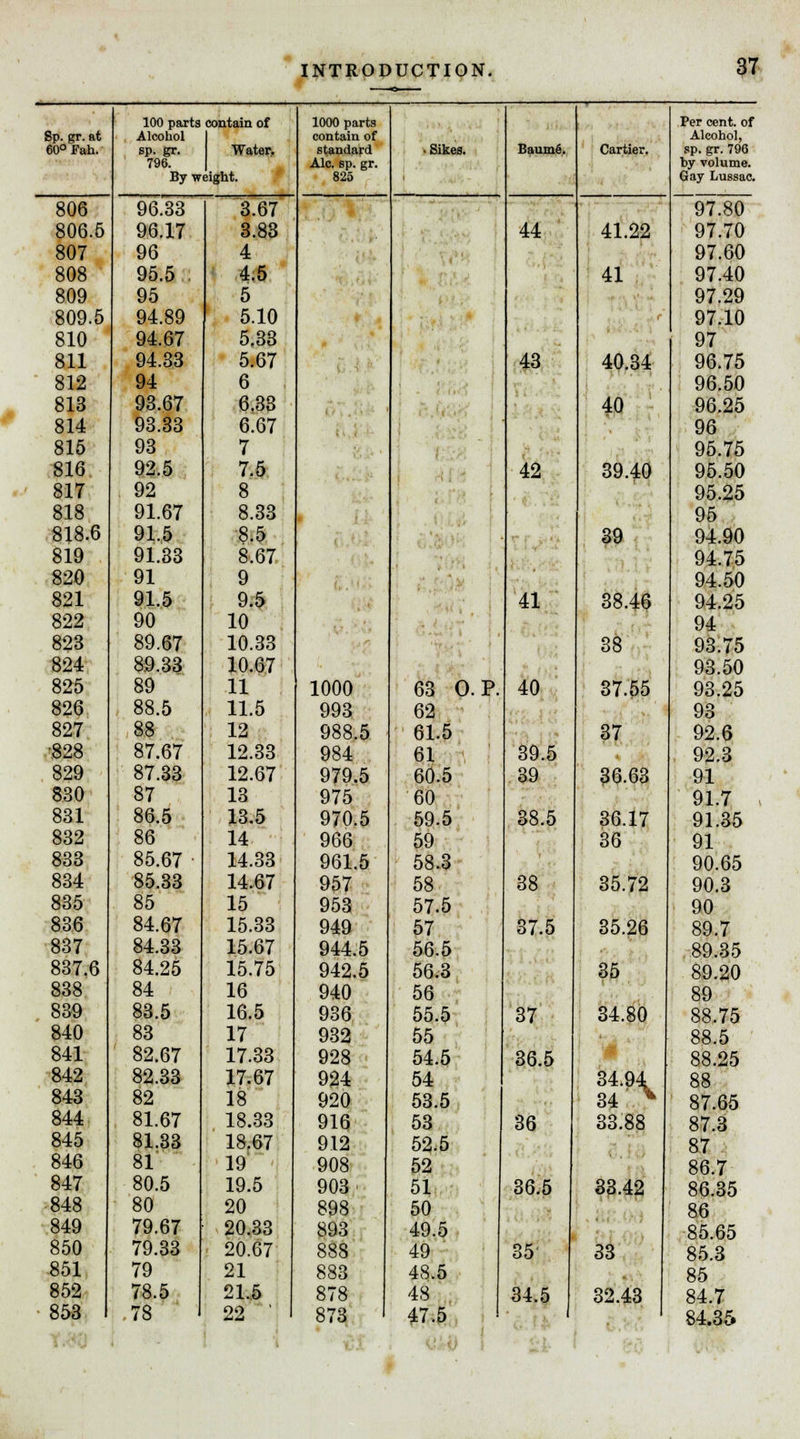 INTRODUCTION. 37
Sp. gr. at 60° Fah. | 100 parts contain of Alcohol sp. gr. 796. By weight. | Water. | 1000 parts contain of standard Alc. sp. gr. 825 | Sikes. | Baumé. | Cartier. | Per cent. of Alcohol, sp. gr. 796 by volume. Gay Lussac.
806 96.33 3.67 97.80
806.5 96.17 3.83 44 41.22 97.70
807 96 4 97.60
808 95.5 4.5 41 97.40
809 95 5 97.29
809.5 94.89 5.10 97.10
810 94.67 5.33 97
811 94.33 5.67 43 40.34 96.75
812 94 6 96.50
813 93.67 6.33 40 96.25
814 93.33 6.67 96
815 93 7 95.75
816 92.5 7.5 42 39.40 95.50
817 92 8 95.25
818 91.67 8.33 95
818.6 91.5 8.5 39 94.90
819 91.33 8.67 94.75
820 91 9 94.50
821 91.5 9.5 41 38.46 94.25
822 90 10 94
823 89.67 10.33 38 93.75
824 89.33 10.67 93.50
825 89 11 1000 63 O. P. 40 37.55 93.25
826 88.5 11.5 993 62 93
827 88 12 988.5 61.5 37 92.6
828 87.67 12.33 984 61 39.5 92.3
829 87.33 12.67 979.5 60.5 39 36.63 91
830 87 13 975 60 91.7
831 86.5 13.5 970.5 59.5 38.5 36.17 91.35
832 86 14 966 59 36 91
833 85.67 14.33 961.5 58.3 90.65
834 85.33 14.67 957 58 38 35.72 90.3
835 85 15 953 57.5 90
836 84.67 15.33 949 57 37.5 35.26 89.7
837 84.33 15.67 944.5 56.5 89.35
837.6 84.25 15.75 942.5 56.3 35 89.20
838 84 16 940 56 89
839 83.5 16.5 936 55.5 37 34.80 88.75
840 83 17 932 55 88.5
841 82.67 17.33 928 54.5 36.5 88.25
842 82.33 17.67 924 54 34.94 88
843 82 18 920 53.5 34 87.65
844 81.67 18.33 916 53 36 33.88 87.3
845 81.33 18.67 912 52.5 87
846 81 19 908 52 86.7
847 80.5 19.5 903 51 36.5 33.42 86.35
848 80 20 898 50 86
849 79.67 20.33 893 49.5 85.65
850 79.33 20.67 888 49 35 33 85.3
851 79 21 883 48.5 85
852 78.5 21.5 878 48 34.5 32.43 84.7
853 78 22 873 47.5 84.35